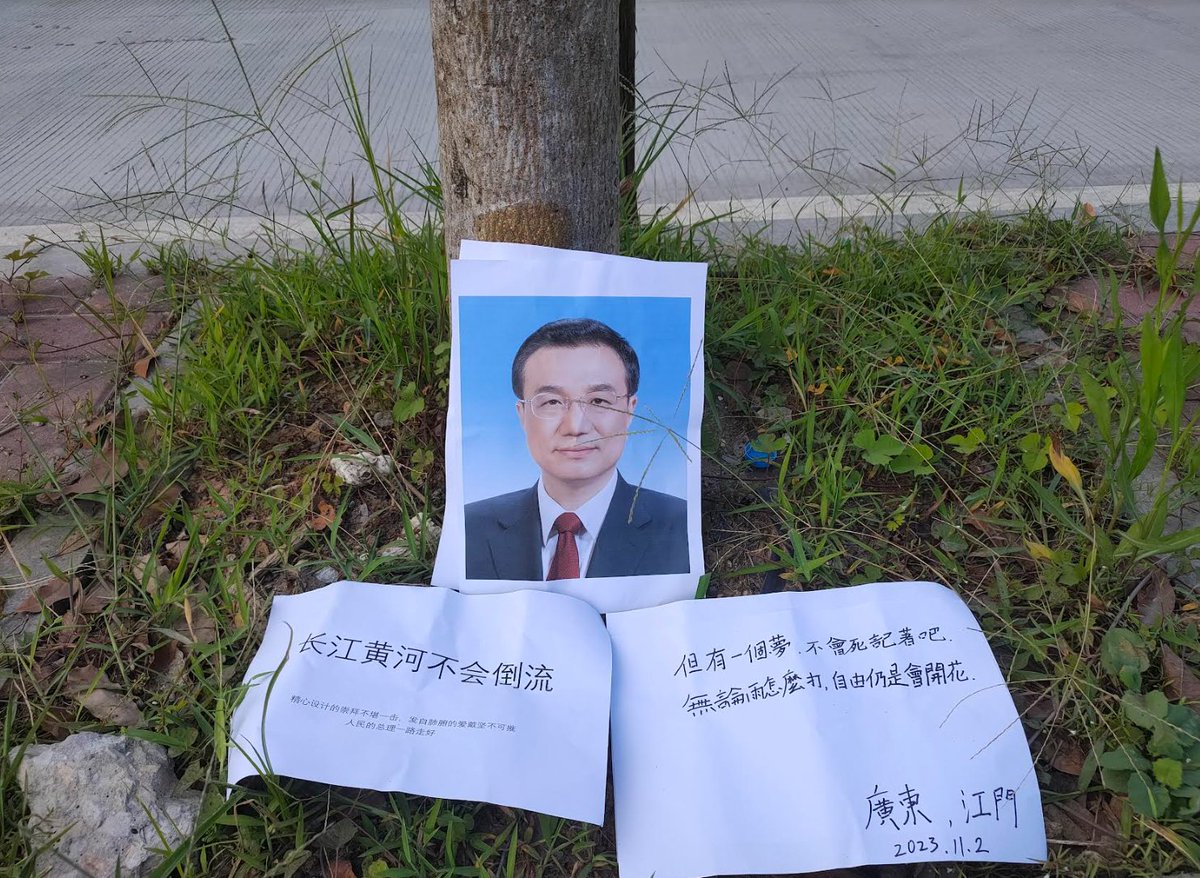 长江黄河不会倒流
精心设计的崇拜不堪一击，发自肺腑的爱戴坚不可摧
人民的总理一路走好
但有一個夢.不會死記著吧.
無論雨怎麼打,自由仍是會開花.
廣東,江門
2023.11.2